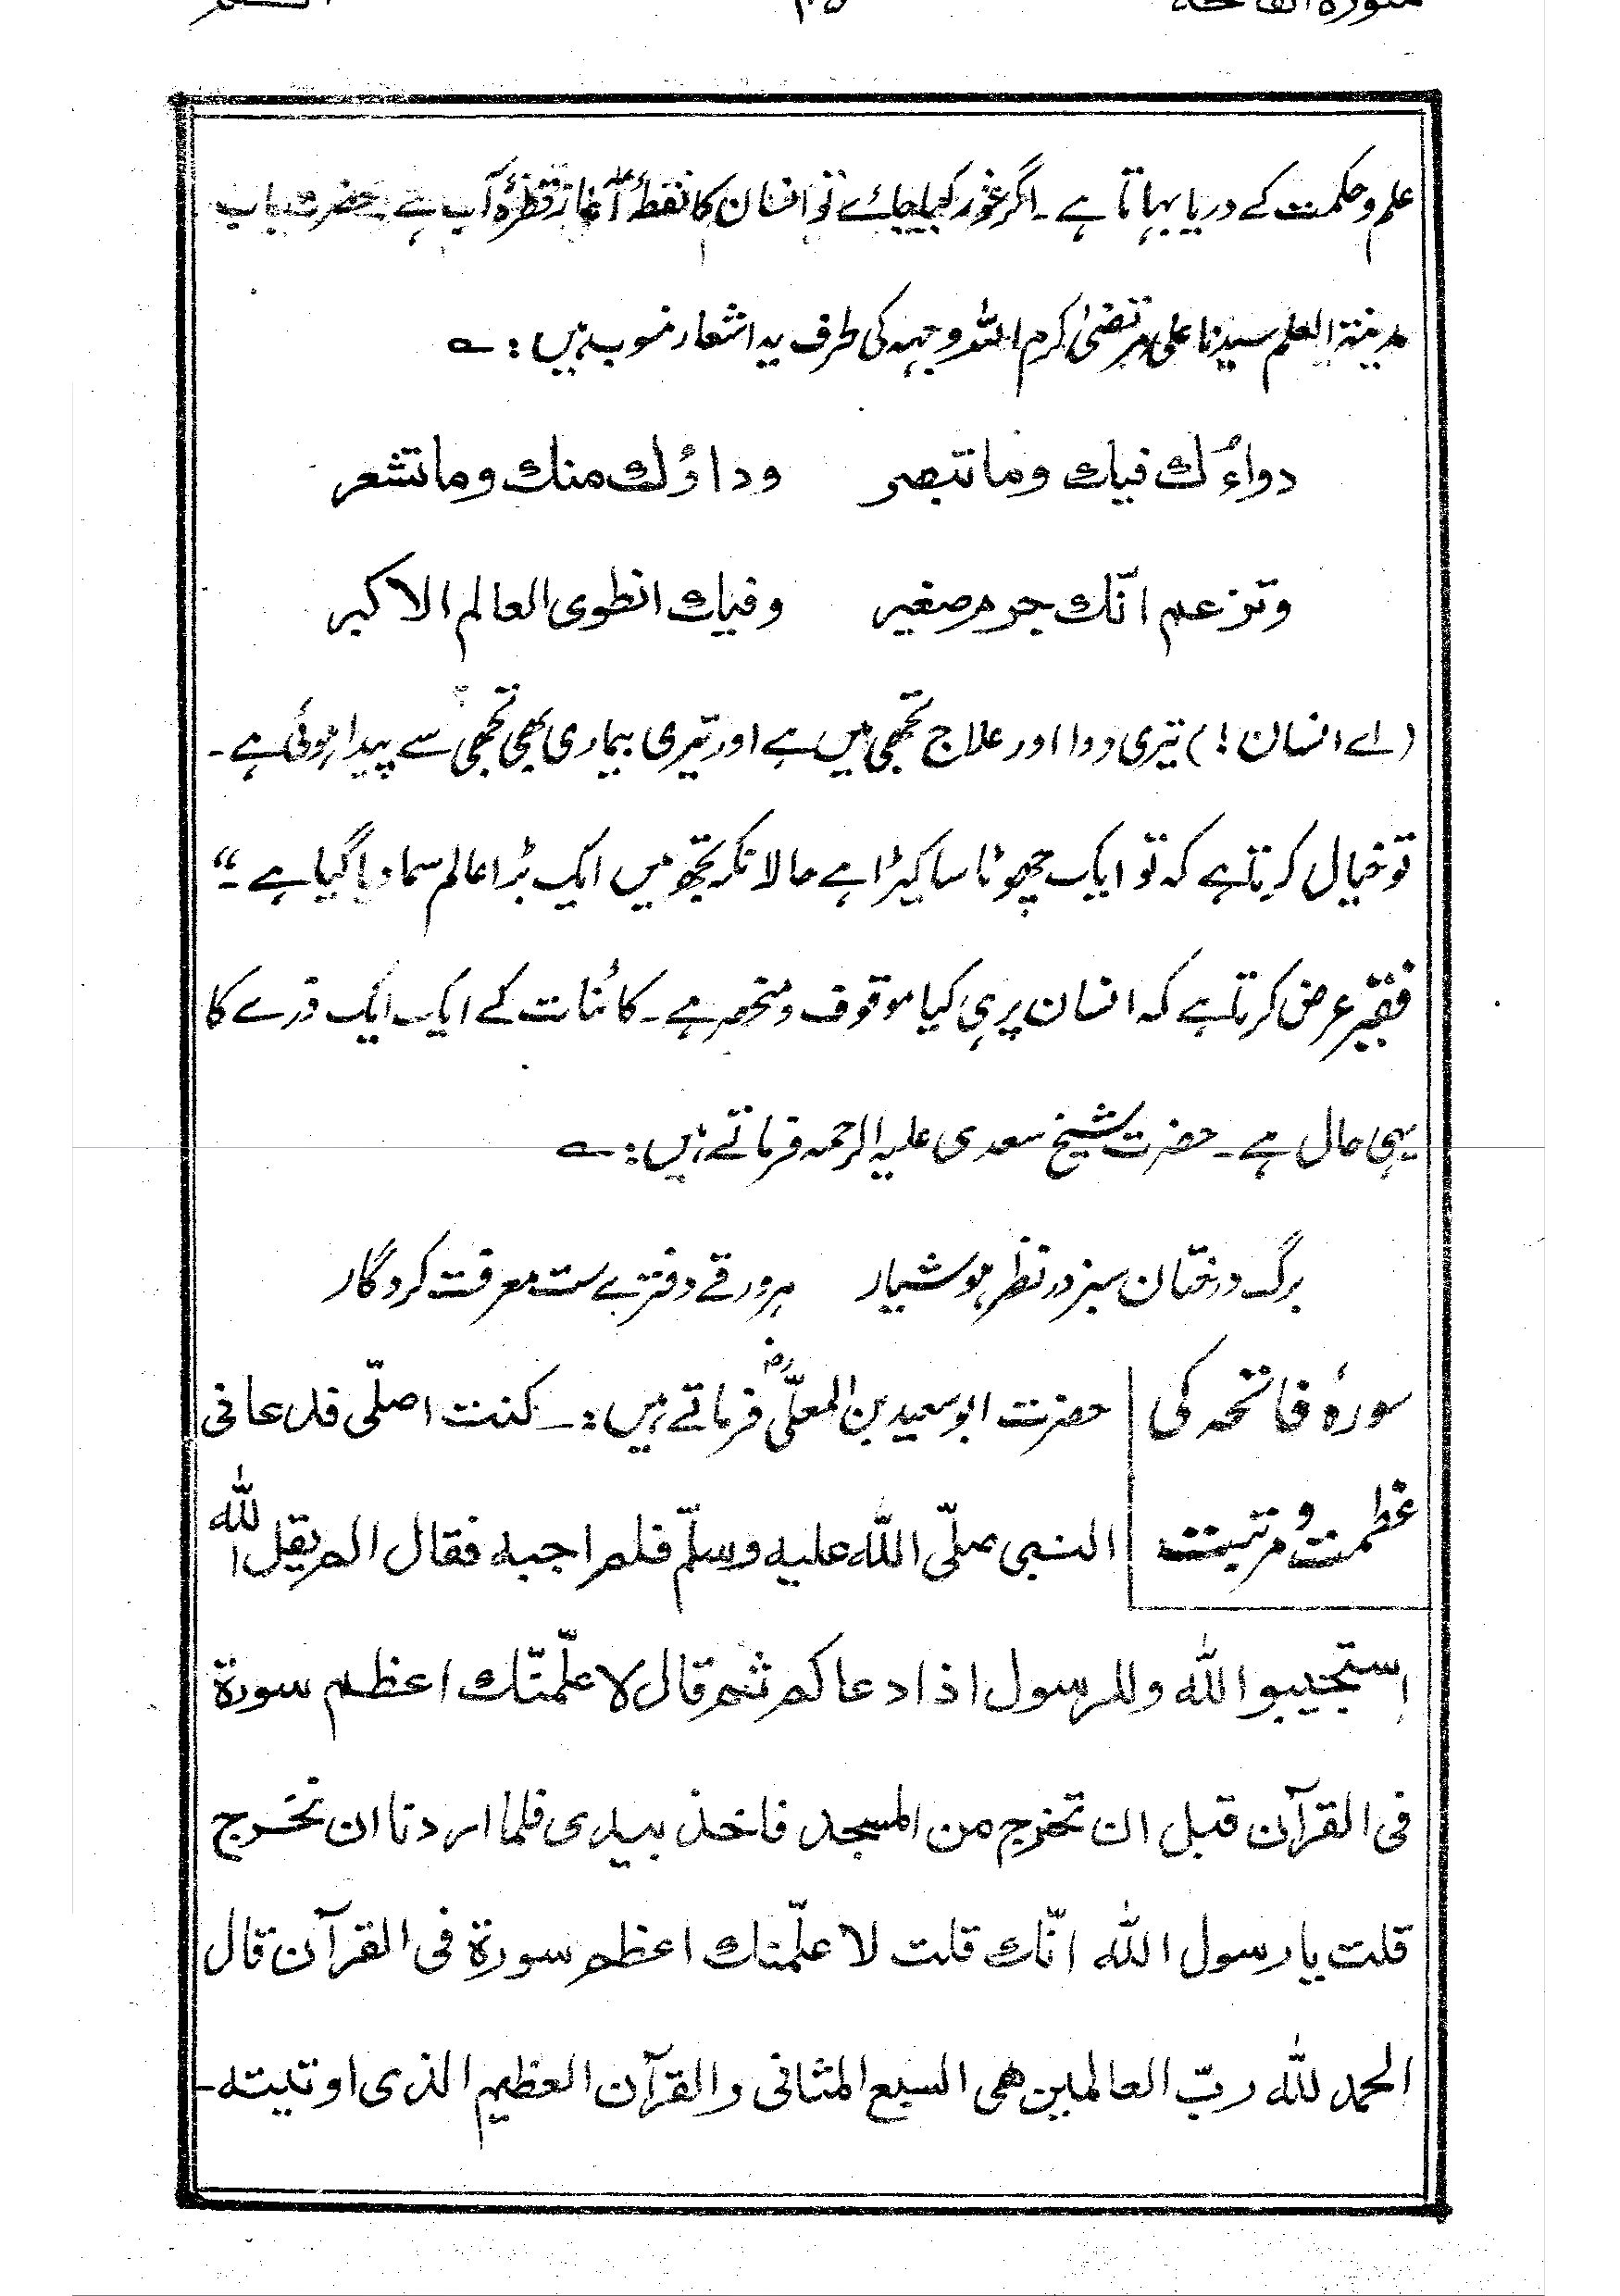 علم و حکمت کے دریا بہاتا ہے ۔ اگر غور کیا جائے تو انسان کا نقطۂ آغاز قطرۂ آب ہے ۔ حضرت باب
مدینۃ العلم سیدنا علی مرتضیٰ کرم اللہ وجہہ کی طرف یہ اشعار منسوب ہیں : ؎
دواءُك فيك وما تبصر وداؤك منك وما تشعر
وتزعم انّك جرم صغير وفيك انطوى العالم الاكبر
(اے انسان !) تیری دوا اور علاج تجھی میں ہے اور تیری بیماری بھی تجھی سے پیدا ہوئی ہے ۔
تو خیال کرتا ہے کہ تو ایک چھوٹا سا کیڑا ہے حالانکہ تجھ میں ایک بڑا عالم سما دیا گیا ہے ۔“
فقیر عرض کرتا ہے کہ انسان پر ہی کیا موقوف و منحصر ہے ۔ کائنات کے ایک ایک ذرے کا
یہی حال ہے ۔ حضرت شیخ سعدی علیہ الرحمہ فرماتے ہیں : ؎
برگ درختان سبز در نظر ہوشیار ہر ورقے دفتر ے ست معرفت کردگار
سورۂ فاتحہ کی حضرت ابو سعید بن المعلّیؓ فرماتے ہیں :۔ كنت اصلّى فدعانى
عظمت و مرتبت النبى صلّى الله عليه وسلّم فلم اجبه فقال الم يقل الله
استجيبوا لله وللرسول اذا دعاكم ثم قال لاعلّمنّك اعظم سورة
فى القرآن قبل ان تخرج من المسجد فاخذ بيدى فلما اردنا ان نخرج
قلت يا رسول الله انّك قلت لاعلّمنك اعظم سورة فى القرآن قال
الحمد لله ربّ العالمين هى السبع المثانى والقرآن العظيم الذى اوتيته ۔